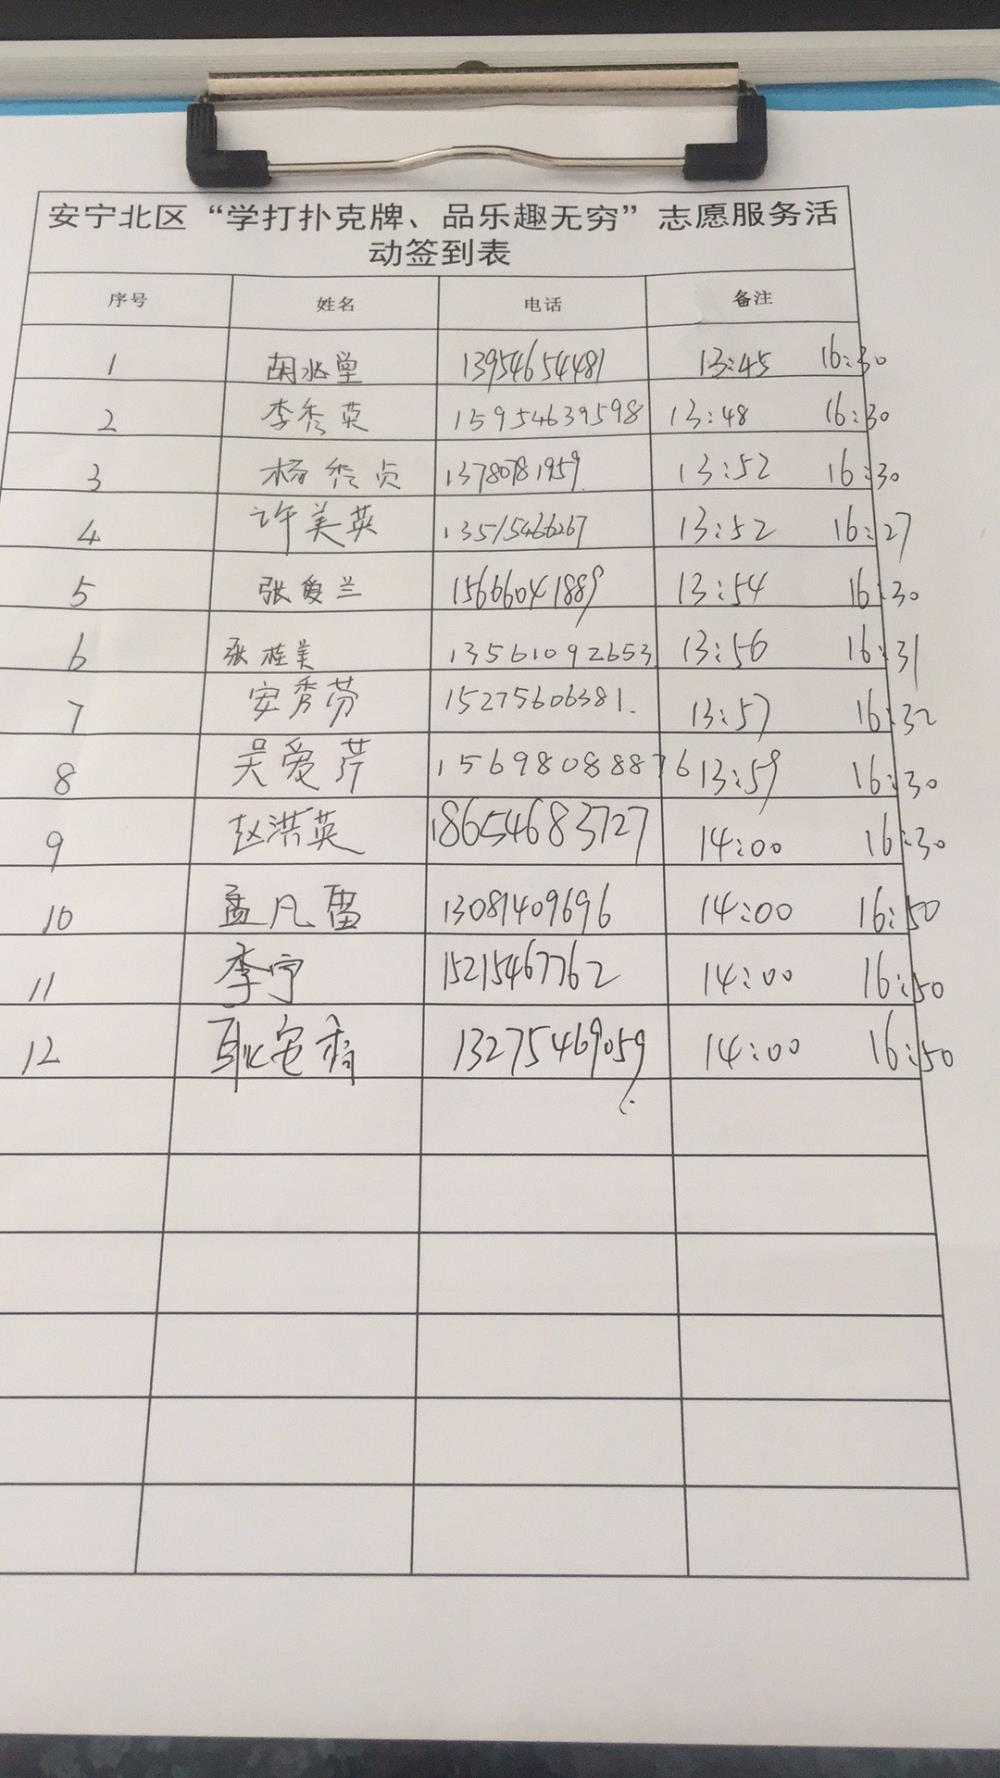 安宁北区“学打扑克牌、品乐趣无穷”志愿服务活
动签到表
序号 姓名 电话 备注
1 胡兆堂 13954654481 13:45 16:30
2 李秀英 15954639598 13:48 16:30
3 杨秀贞 13780781959 13:52 16:30
4 许美英 13515466267 13:52 16:27
5 张爱兰 15666041889 13:54 16:30
6 张桂美 13561092653 13:56 16:31
7 安秀芬 15275606381 13:57 16:32
8 吴爱芹 15698088876 13:59 16:30
9 赵洪英 18654683727 14:00 16:30
10 孟凡雷 13081409696 14:00 16:50
11 李宁 15215467762 14:00 16:50
12 13275469059 14:00 16:50